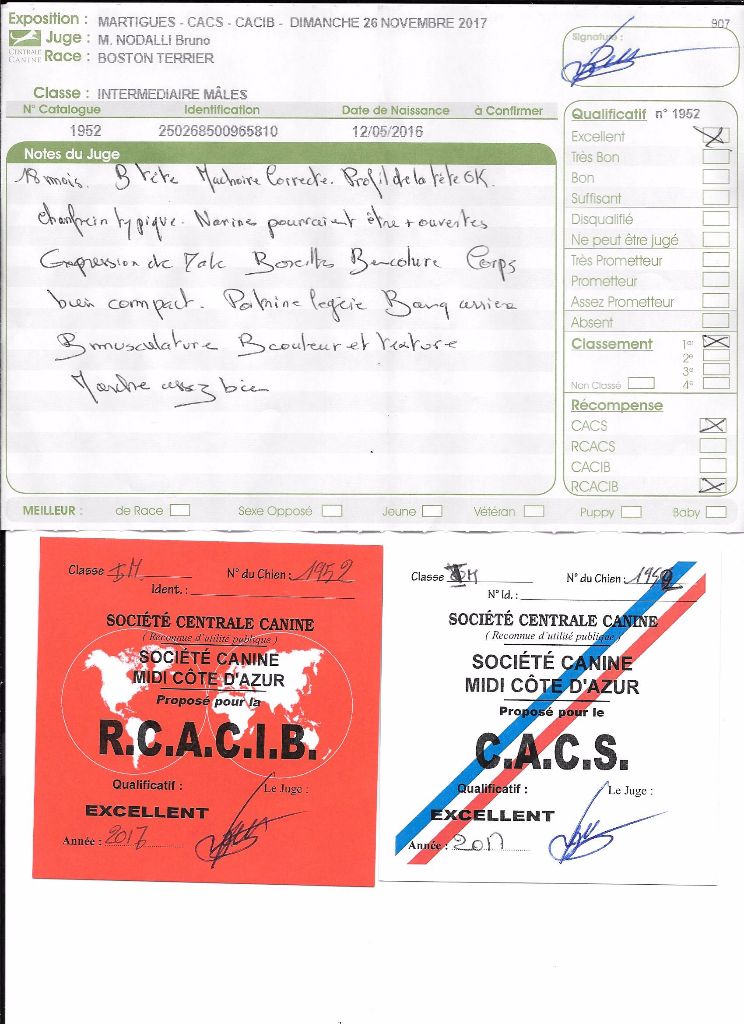 Exposition : MARTIGUES - CACS - CACIB - DIMANCHE 26 NOVEMBRE 2017
907
Juge : M. NODALLI Bruno
Signature :
CENTRALE CANINE
Race : BOSTON TERRIER
Classe : INTERMEDIAIRE MÂLES
N° Catalogue Identification Date de Naissance à Confirmer
1952 250268500965810 12/05/2016
Notes du Juge
18 mois. B tête Machoire Correcte. Profil de la tête OK.
chanfrein typique. Narines pourraient être + ouvertes
Expression de Male B oreilles B encolure Corps
bien compact. Poitrine legère B arrière
B musculature B couleur et texture
assez bien
Qualificatif n° 1952
Excellent
Très Bon
Bon
Suffisant
Disqualifié
Ne peut être jugé
Très Prometteur
Prometteur
Assez Prometteur
Absent
Classement 1er
2e
3e
Non Classé 4e
Récompense
CACS
RCACS
CACIB
RCACIB
MEILLEUR : de Race Sexe Opposé Jeune Vétéran Puppy Baby
Classe IM N° du Chien : 1952
Ident. :
SOCIÉTÉ CENTRALE CANINE
( Reconnue d'utilité publique )
SOCIÉTÉ CANINE
MIDI CÔTE D'AZUR
Proposé pour la
R.C.A.C.I.B.
Qualificatif : Le Juge :
EXCELLENT
Année : 2017
Classe IM N° du Chien : 1952
N° Id. :
SOCIÉTÉ CENTRALE CANINE
( Reconnue d'utilité publique )
SOCIÉTÉ CANINE
MIDI CÔTE D'AZUR
Proposé pour le
C.A.C.S.
Qualificatif : Le Juge :
EXCELLENT
Année : 2017